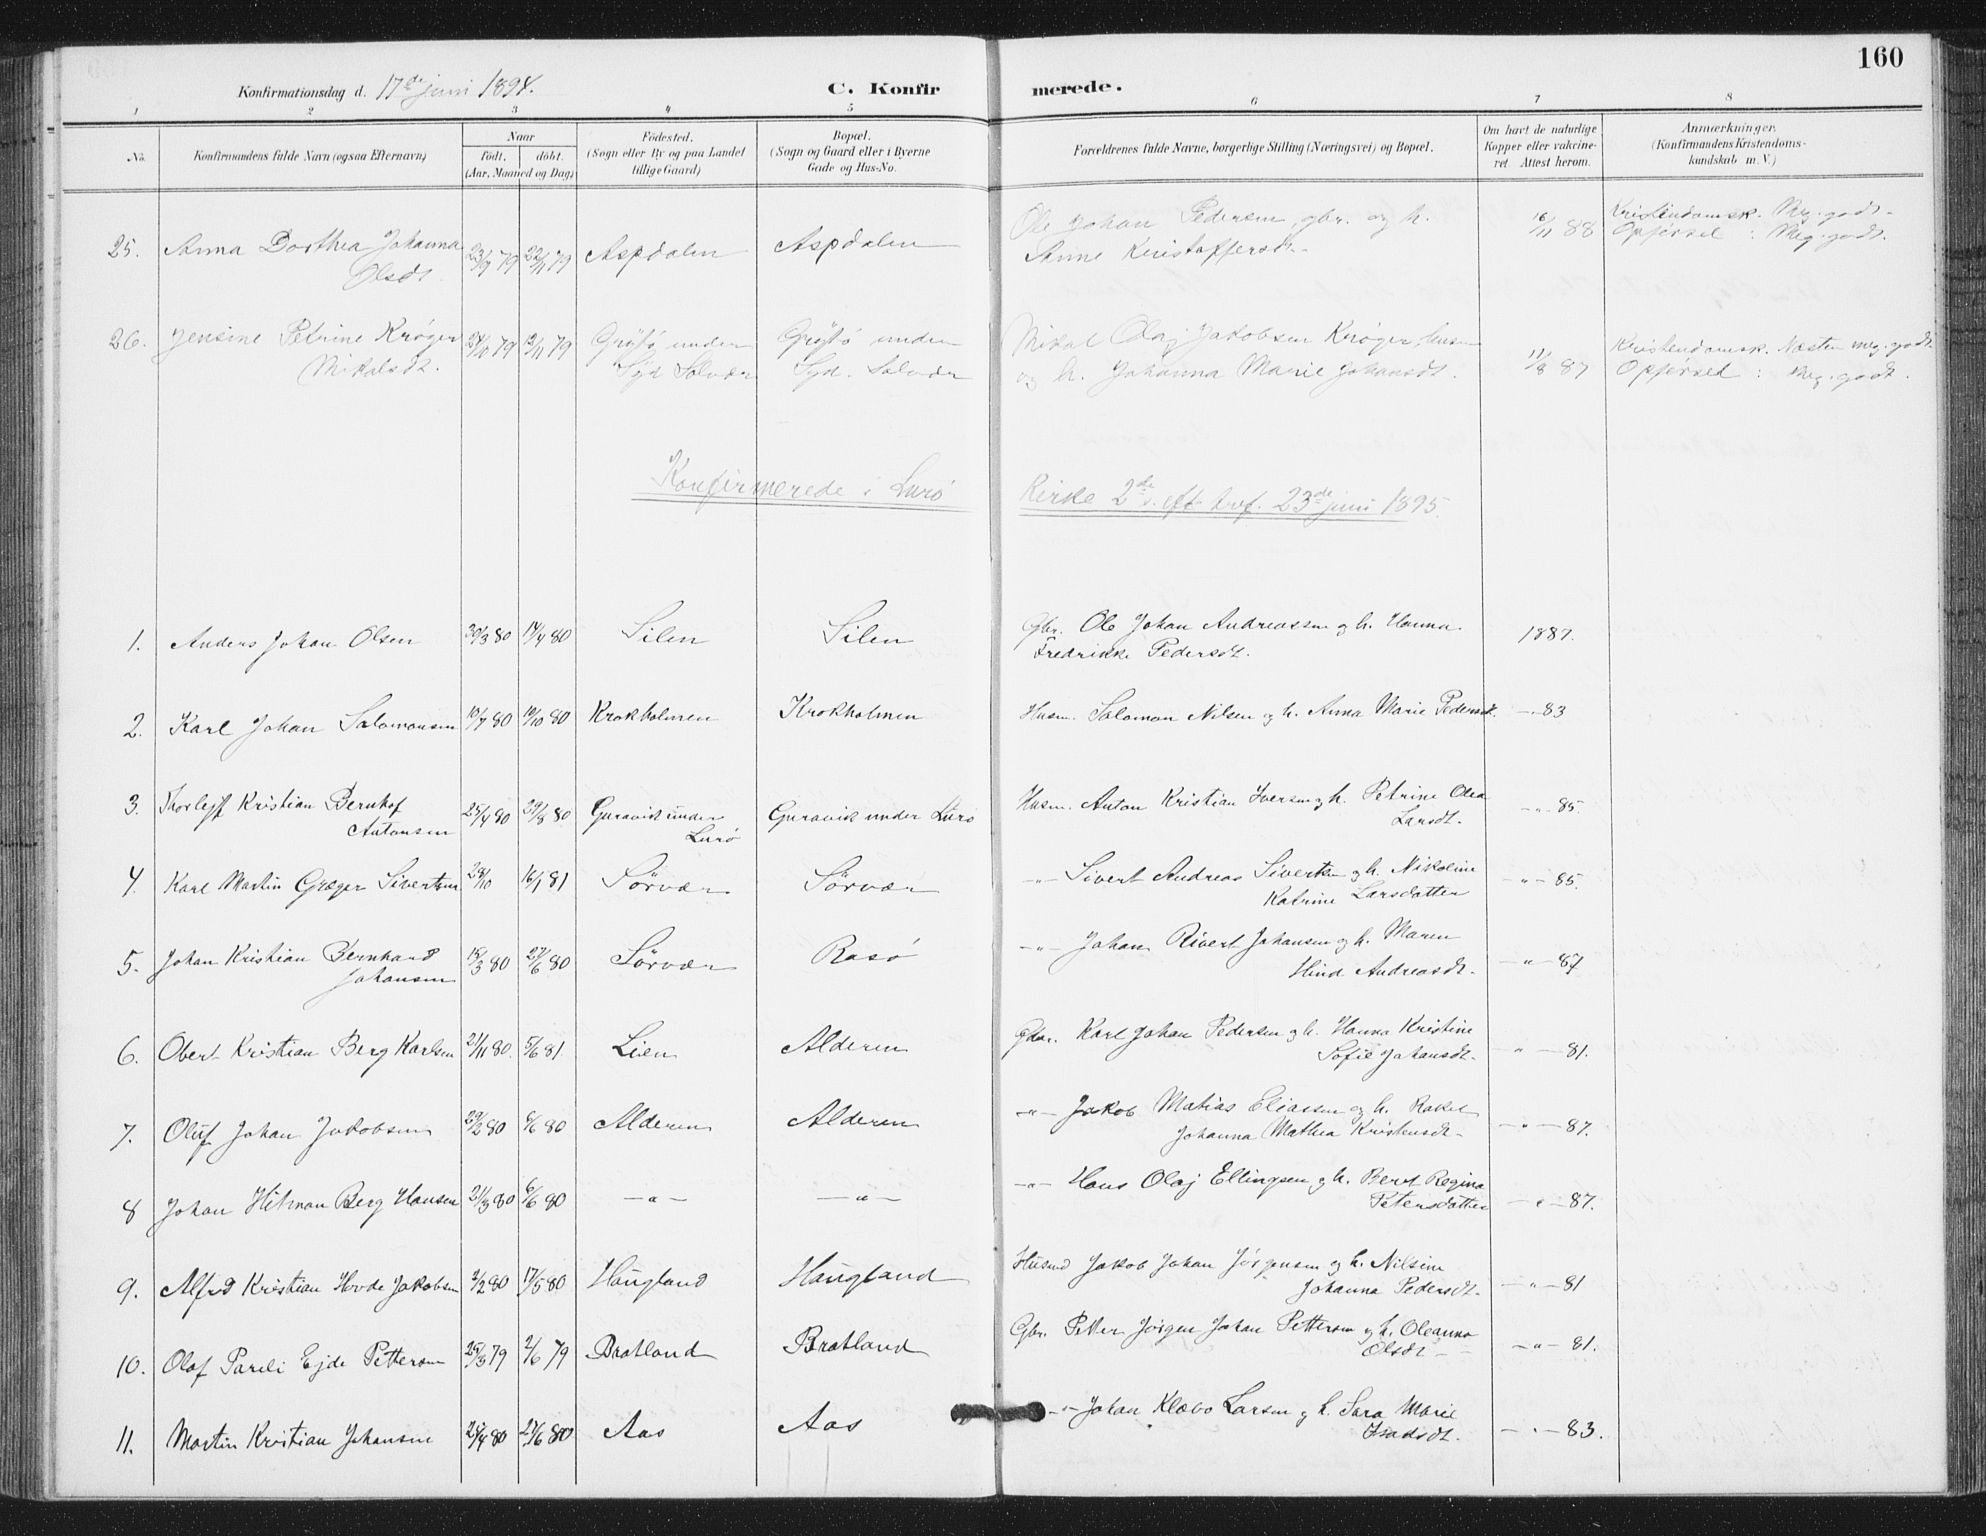 160
Konfirmationsdag d. 17de juni 1894. C. Konfirmerede.
1 2 3 4 5 6 7 8
No. Konfirmandens fulde Navn (ogsaa Efternavn) Naar født. døbt. (Aar, Maaned og Dag) Fødested. (Sogn eller By og paa Landet tillige Gaard) Bopæl. (Sogn og Gaard eller i Byerne Gade og Hus-No. Forældrenes fulde Navne, borgerlige Stilling (Næringsvei) og Bopæl. Om havt de naturlige Kopper eller vakcineret. Attest herom. Anmærkninger. (Konfirmandens Kristendomskundskab m. V.)
25. Anna Dorthea Johanna Olsdt. 23/9 79 22/11 79 Aspdalen Aspdalen Ole Johan Pedersen gbr. og h. Anne Kristoffersdt. 16/11 88 Kristendomsk. Meg. godt. Opførsel : Meg. godt.
26. Jensine Petrine Krøger Mikalsdt. 24/10 79 13/11 79 Grøftø under Syd Solvær Grøftø under Syd. Solvær Mikal Olaj Jakobsen Krøger husm og h. Johanna Marie Johansdt. 11/8 87 Kristendomsk. Næsten meg. godt. Opførsel : Meg. godt.
Konfirmerede i Lurø Kirke 2de s. eft. tref. 23de juni 1895.
1. Anders Johan Olsen 30/3 80 14/4 80 Silen Silen Gbr. Ole Johan Andreassen og h. Hanna Fredrikke Pedersdt. 1887.
2. Karl Johan Salomonsen 10/7 80 10/10 80 Krokholmen Krokholmen Husm. Salomon Nilsen og h. Anna Marie Pedersdt. -"- 83
3. Thorlejf Kristian Bernhof Antonsen 25/4 80 29/8 80 Guravik under Lurø Guravik under Lurø Husm. Anton Kristian Iversen og h. Petrine Olea Larsdt. -"- 85.
4. Karl Martin Græger Sivertsen 28/10 16/1 81 Sørvær Sørvær -"- Sivert Andreas Sivertsen og h. Nikoline Katrine Larsdatter -"- 85.
5. Johan Kristian Bernhard Johansen 18/3 80 27/6 80 Sørvær Rasø -"- Johan Rivert Johansen og h. Maren Hind Andreasdt. -"- 87
6. Obert Kristian Berg Karlsen 21/11 80. 5/6 81. Lien Alderen Gbr. Karl Johan Pedersen og h. Hanna Kristine Sofie Johansdt. -"- 81.
7. Oluf Johan Jakobsen 29/2 80 6/6 80 Alderen Alderen -"- Jakob Matias Eliassen og h. Rakel Johanna Mathea Kristensdt. -"- 87.
8 Johan Hilman Berg Hansen 21/3 80 6/6 80 -"- -"- -"- Hans Olaj Ellingsen og h. Beret Regina Petersdatter -"- 87.
9. Alfred Kristian Hovde Jakobsen 2/2 80 17/5 80 Haugland Haugland Husmd Jakob Johan Jørgensen og h. Nilsine Johanna Pedersdt. -"- 81
10. Olaf Pareli Ejde Pettersen 25/3 79 2/6 79 Bratland Bratland Gbr. Petter Jørgen Johan Pettersen og h. Oleanna Olsdt -"- 81.
11. Martin Kristian Johansen 25/4 80 27/6 80 Aas Aas -"- Johan Klæbo Larsen og h. Sara Marie Isaksdt. -"- 83.